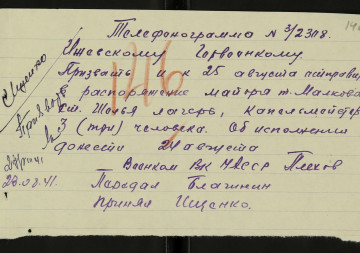 Телефонограмма № 3/2318.
Ижевскому Горвоенкому.
Призвать и к 25 августа направить
в распоряжение майора т. Малкова
ст. Шолья лагерь, капельмейстера
3 (три) человека. Об исполнении
донести 24 августа
Военком ВК УАССР Плехов
Передал
Принял Ищенко.
Ищенко
23.08.41.
1146